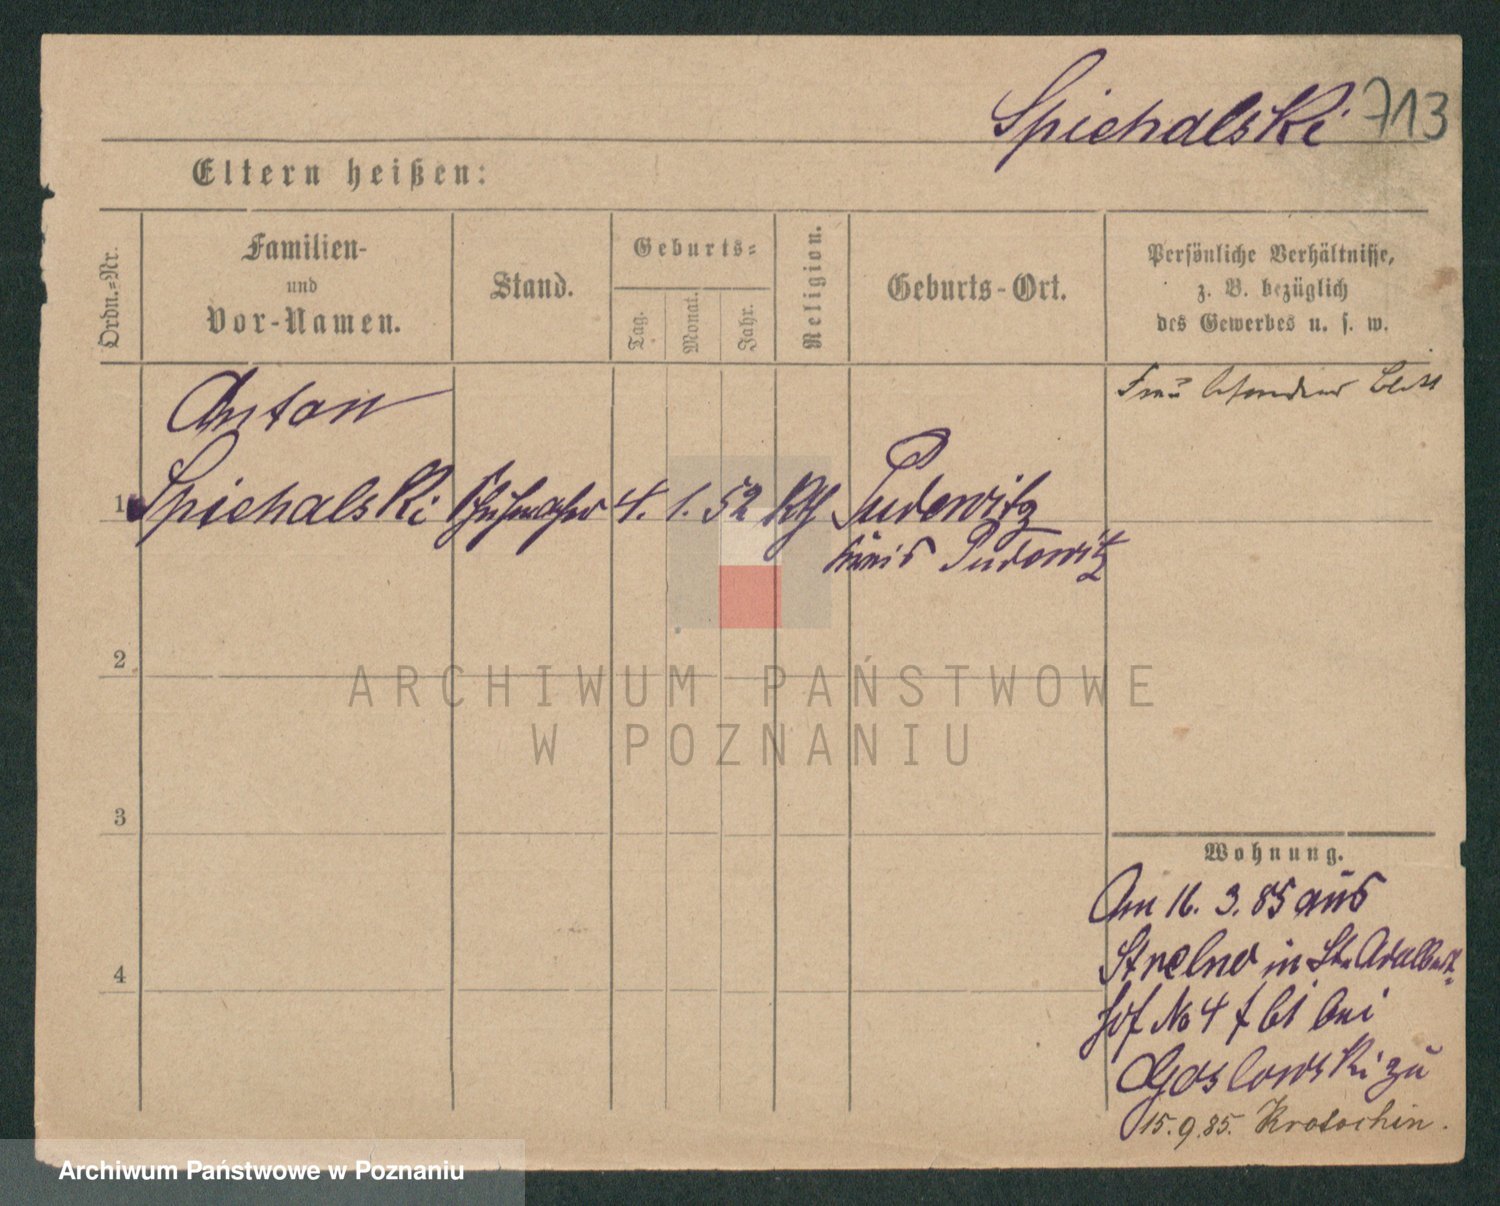 Spichalski 713
Eltern heißen:
Ordn.-Nr.
Familien-
und
Vor-Namen.
Stand.
Geburts-
Tag.
Monat.
Jahr.
Religion.
Geburts-Ort.
Persönliche Verhältnisse,
z. B. bezüglich
des Gewerbes u. s. w.
Anton
1 Spichalski Schuhmacher 4. 1. 52 Kth Pudewitz
Kreis Pudewitz
2
3
4
Wohnung.
Am 16. 3. 85 aus
Strelno in St. Adalbert-
hof No 4 bei
Goslowski zu
15.9.85. Krotoschin.
ARCHIWUM PAŃSTWOWE
W POZNANIU
Archiwum Państwowe w Poznaniu